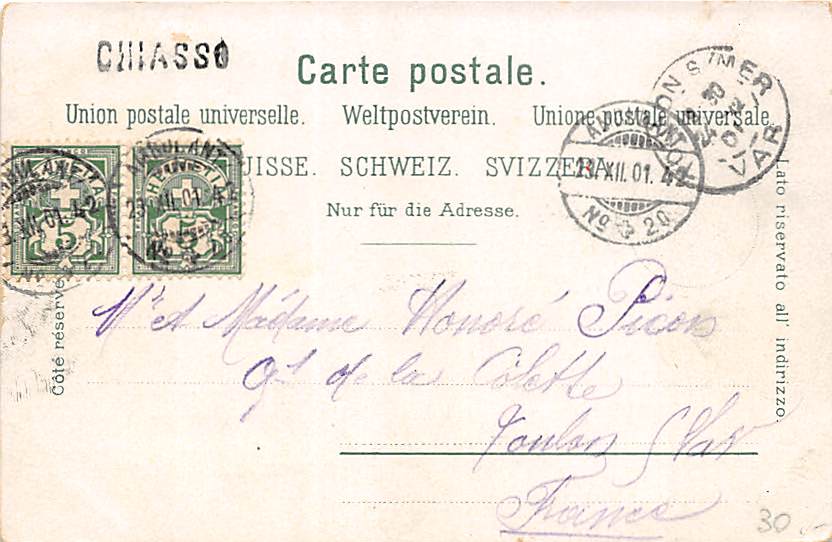 CHIASSO
Carte postale.
Union postale universelle. Weltpostverein. Unione postale universale.
SUISSE. SCHWEIZ. SVIZZERA.
Nur für die Adresse.
Côté réservé
Lato riservato all' indirizzo.
AMBULANT
23.XII.01.4
No 20
TOULON S/MER
VAR
5
5
Mr et Madame Honoré Picon
qr de la Colette
Toulon Var
France
30